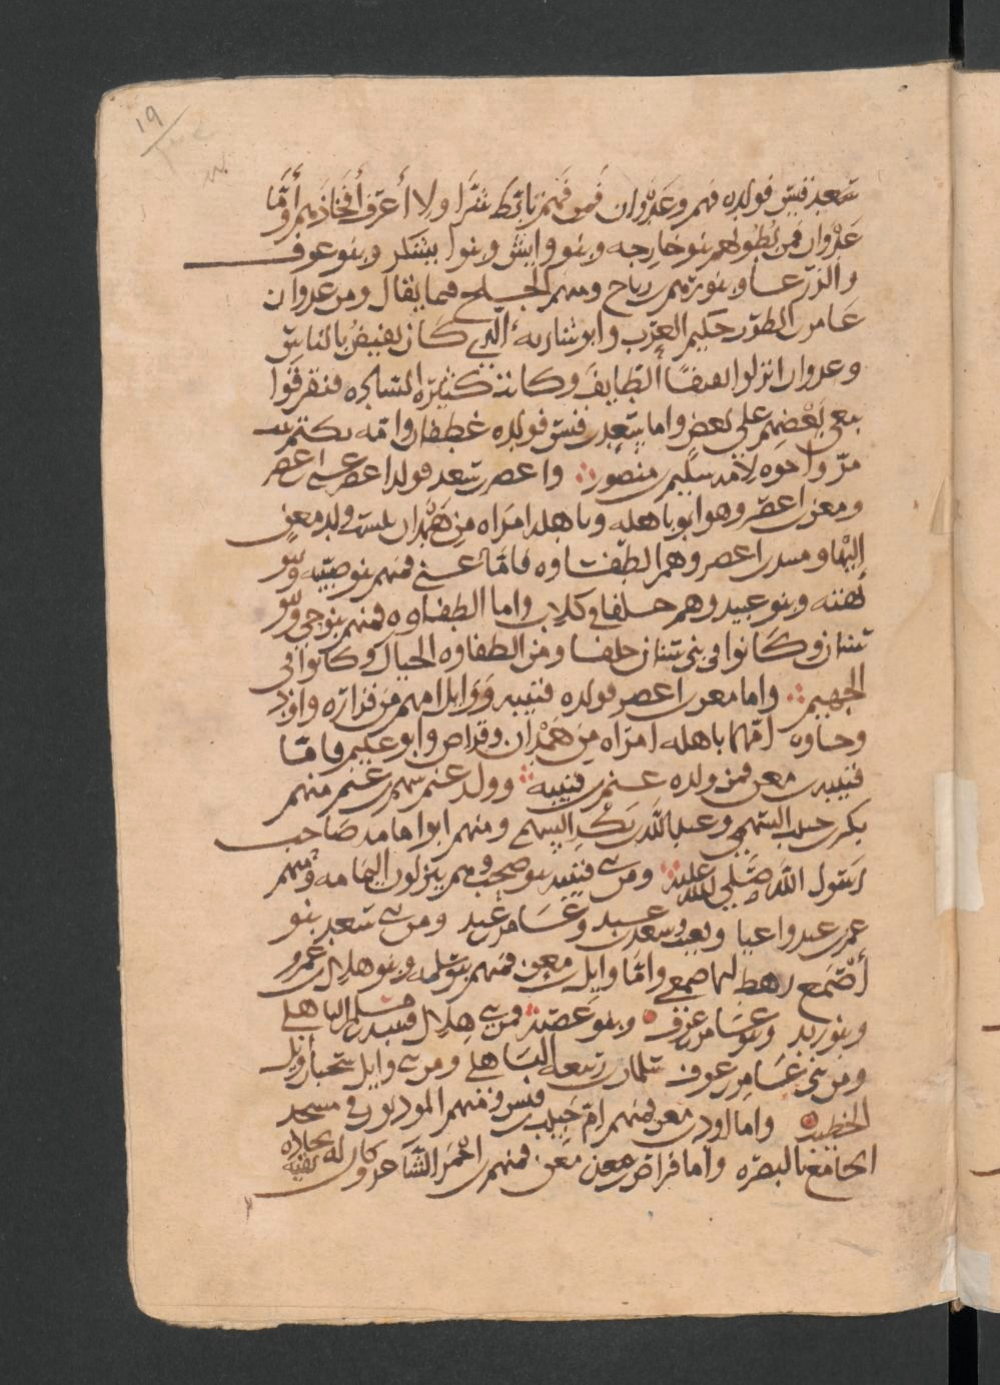 ١٩
سعد بن قيس فولده فهم وعدوان فمن فهم تابط شرا ولا أعرف أفخاذهم وأما
عدوان فمن بطونهم بنو خارجه وبنو وابش وبنوا يشكر وبنو عوف
وبنو رهم بن رباح ومنهم فيما يقال ومن عدوان
عامر بن الظرب حكيم العرب وابو سياره الذي كان يفيض بالناس
وعدوان انزلوا ثقيفا الطايف وكانت كثيره السادة فتفرقوا
بغي بعضهم على بعض واما سعد بن قيس فولده غطفان وامه تكتم بنت
مرّ واخوه لامه سليم بن منصور واعصر بن سعد فولد اعصر غنى بن اعصر
ومعن بن اعصر وهو ابو باهله وباهلة امراه من همدان نسب ولد معن
اليها و بن اعصر وهم الطفاوه فاما غنى فمنهم بنو ضبيبه وبنو
بهثه وبنو عبيد وهم حلفا في كلاب واما الطفاوه فمنهم بنو جي وبنو
سنان وكانوا في بني سنان حلفا ومن الطفاوه الحبال وكانوا في
الجهيم واما معن بن اعصر فولده قتيبه ووايل امهم من فزاره واود
وجاوه امهما باهله امراه من همدان وقراص وابو عليم فاما
قتيبه بن معن فمن ولده غنم بن قتيبه وولد غنم سهم بن غنم منهم
بكر بن حبيب السهمي وعبد الله بن بكر السهمي ومنهم ابو امامه صاحب
رسول الله صلى الله عليه ومن بني قتيبه بنو صحب وهم ينزلون اليمامه ومنهم
عمرو بن عبد واعيا وسعد بن عبد وعامر بن عبد ومن بني سعد بنو
أصمع رهط الاصمعي واما وايل بن معن فمنهم بنو سلمه وبنو هلال بن عمرو
وبنو زيد وبنو عامر بن عوف وبنو عصيه فمن بني هلال قتيبه بن مسلم الباهلي
ومن بني عامر بن عوف سلمان بن ربيعه الباهلي ومن بني وايل سحبان وايل
الخطيب واما اود بن معن فمنهم ام حبيب بن قيس فمنهم الموذنون في مسجد
الجامع بالبصره واما فراص بن معن فمنهم بن احمر الشاعر وكان له بجاده
بقيه